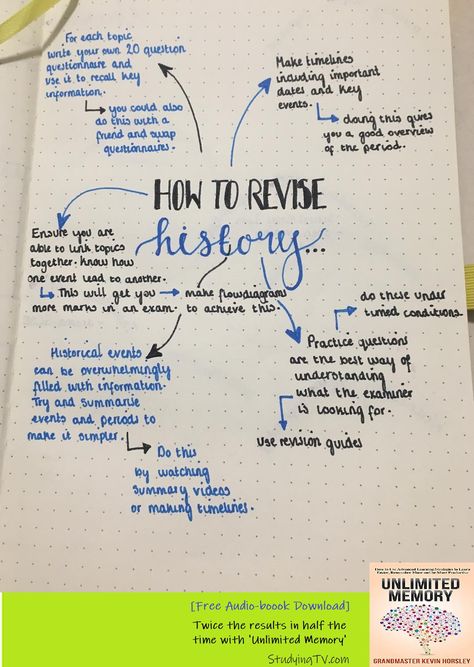 For each topic
write your own 20 question
questionnaire and
use it to recall key
information.
you could also
do this with a
friend and swap
questionnaires.
Make timelines
including important
dates and key
events.
doing this gives
you a good overview
of the period.
HOW TO REVISE
history...
Ensure you are
able to link topics
together. know how
one event lead to another.
This will get you
more marks in an exam.
make flowdiagrams
to achieve this.
do these under
timed conditions.
Practice questions
are the best way of
understanding
what the examiner
is looking for.
use revision guides
Historical events
can be overwhelmingly
filled with information.
Try and summarise
events and periods to
make it simpler.
Do this
by watching
summary videos
or making timelines.
[Free Audio-boook Download]
Twice the results in half the
time with 'Unlimited Memory'
StudyingTV.com
How to Use Advanced Learning Strategies to Learn
Faster, Remember More and be More Productive
UNLIMITED
MEMORY
GRANDMASTER KEVIN HORSLEY